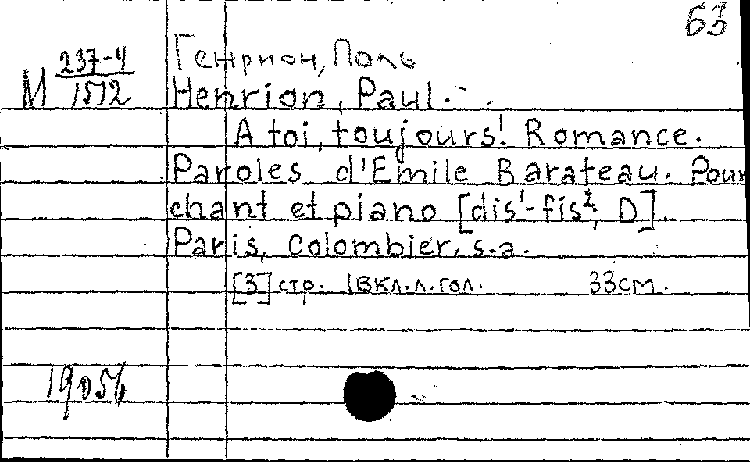 63
Генрион, Поль
М 237-4/1512
Henrion, Paul.
A toi, toujours! Romance.
Paroles d'Emile Barateau. Pour
chant et piano [dis¹-fis², D].
Paris, Colombier, s.a.
[3] стр. 1 вкл.л.гол. 33см.